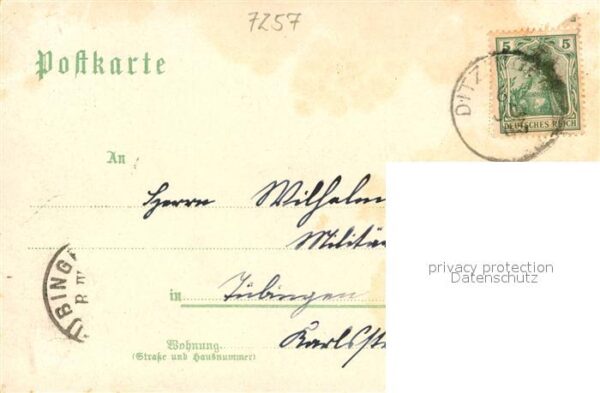 7257
Postkarte
5 5
DEUTSCHES REICH
DITZ
An
Herrn Wilhelm
Militä
BINGE
in Tübingen
Wohnung
(Straße und Hausnummer)
Karlsstr
privacy protection
Datenschutz